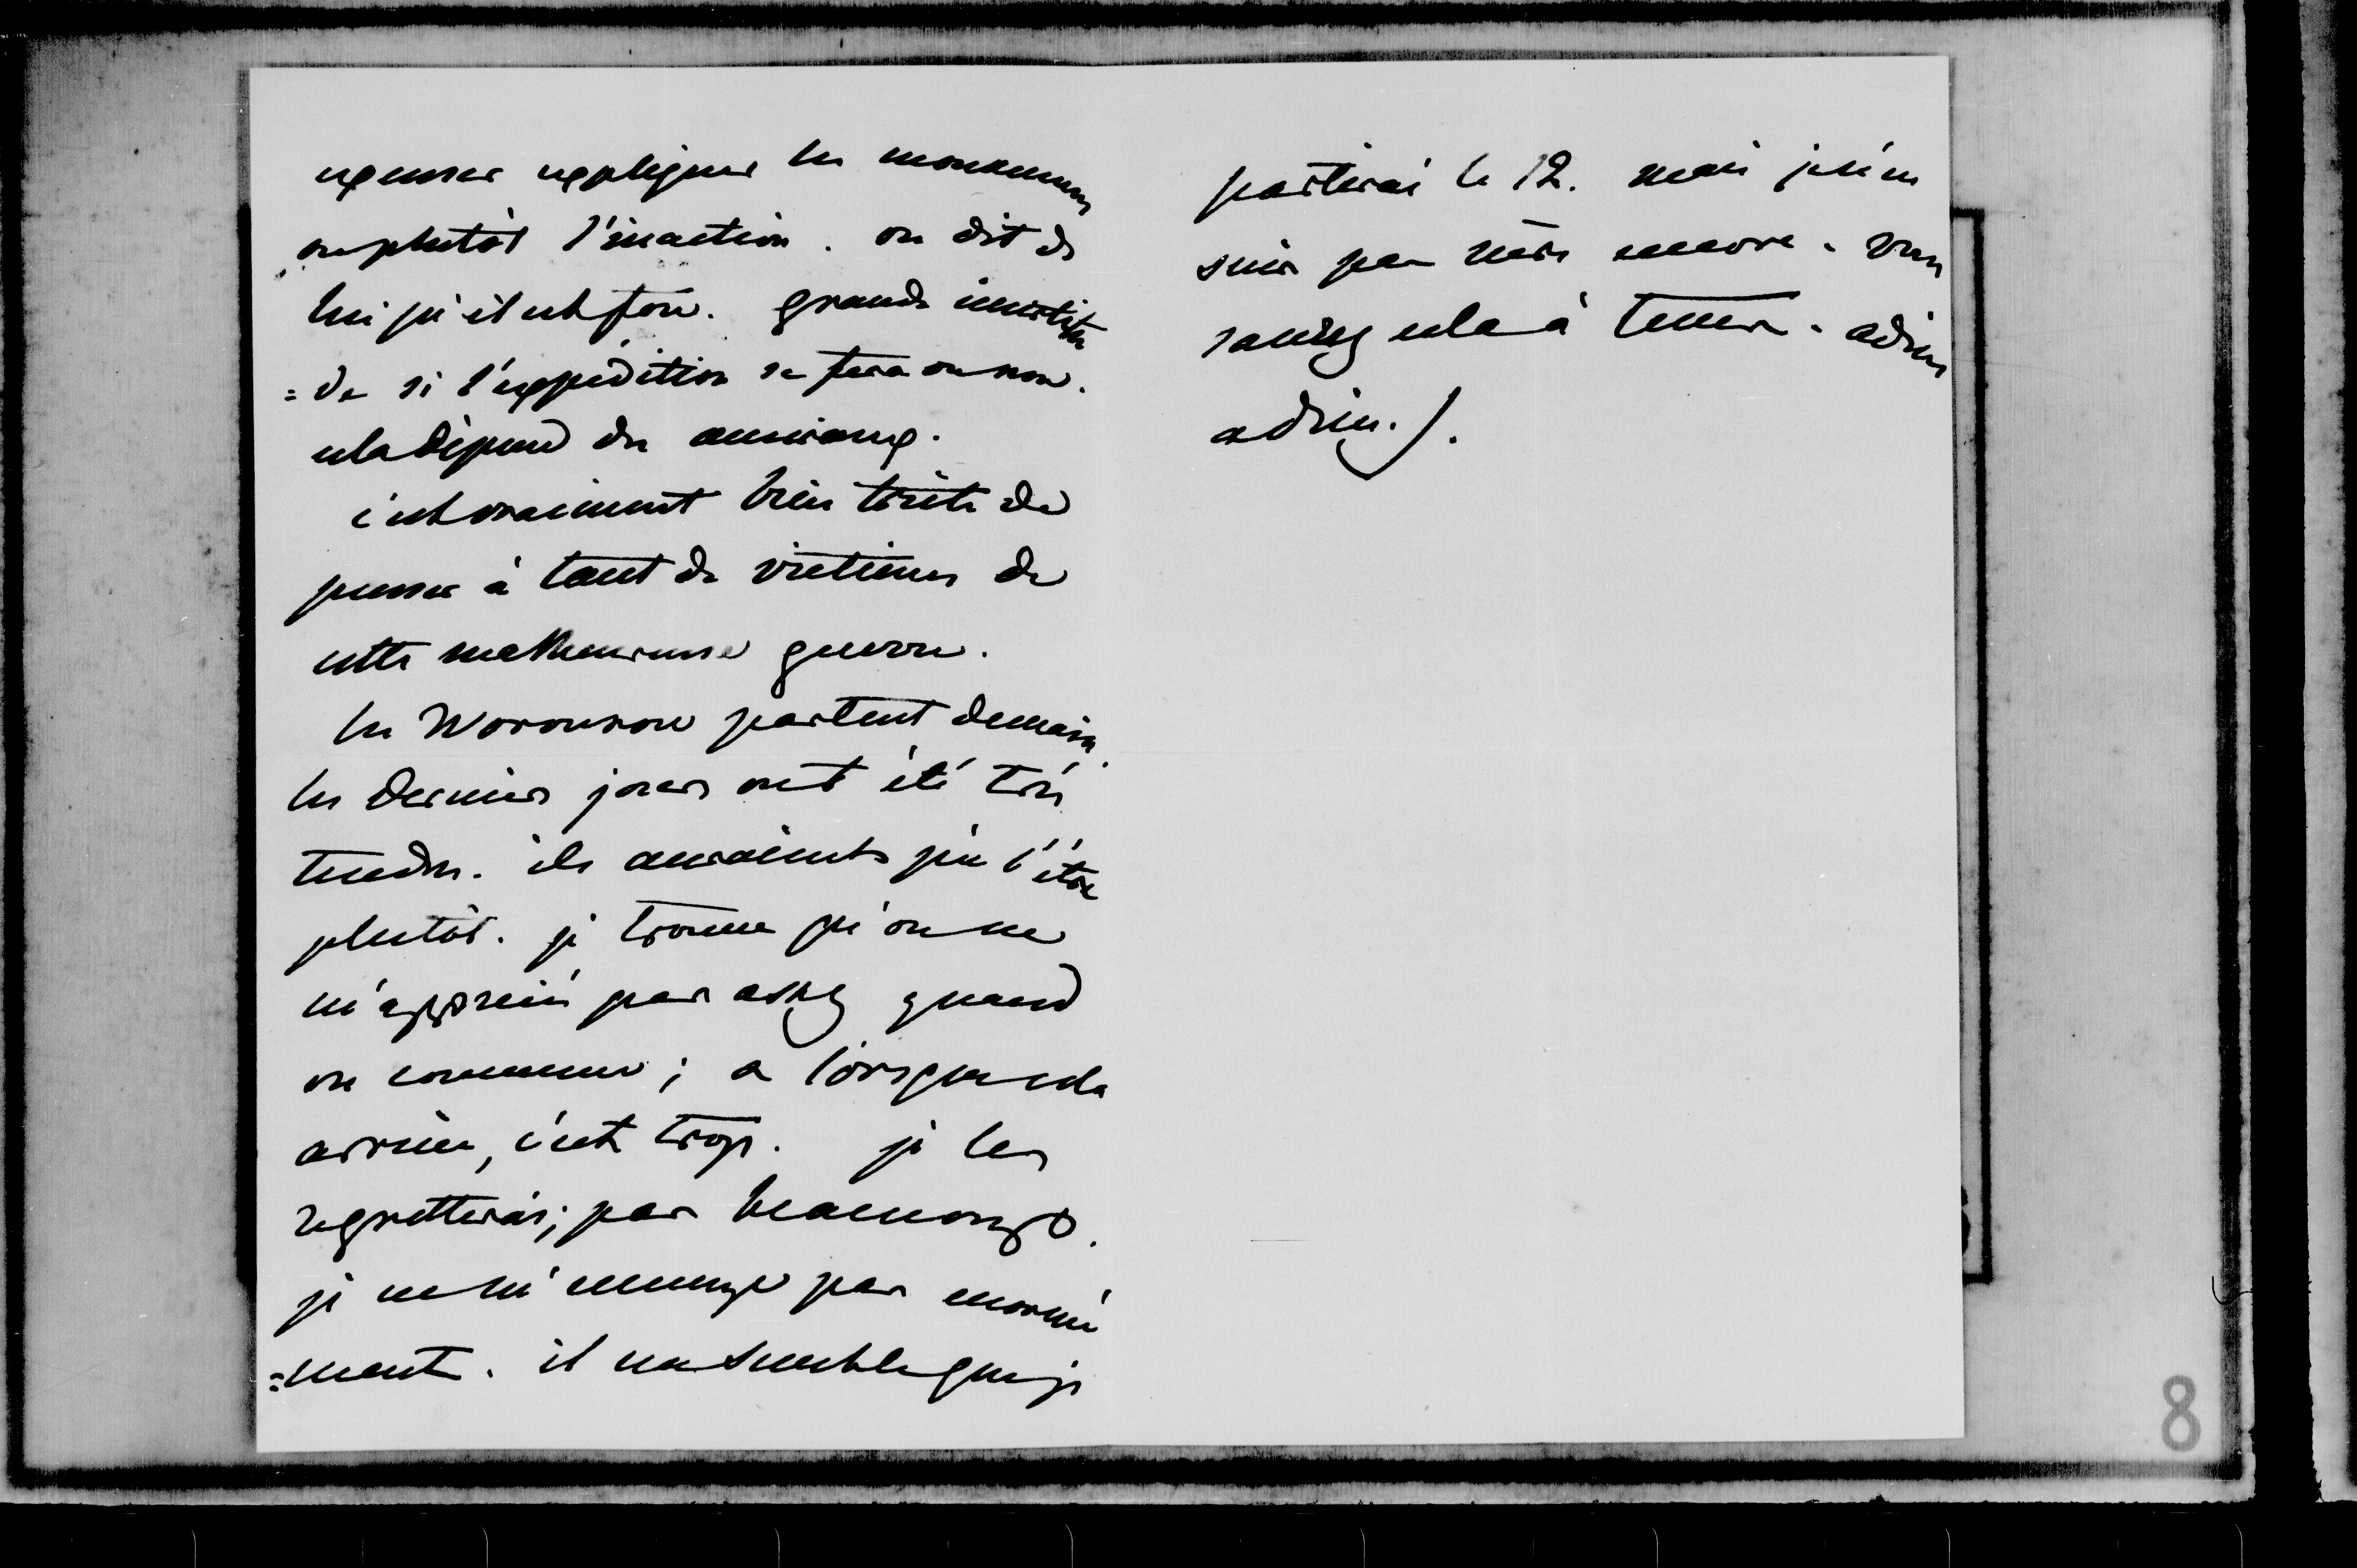 excuser expliquer les mouvemens
ou plutôt l'inaction. on dit de
lui qu'il est fou. grande incertitu
=de si l'expédition se fera ou non.
cela dépend du
c'est vraiment bien triste de
penser à tant de victimes de
cette malheureuse guerre.
les Woronzow partent demain.
les derniers jours ont été très
tendres. ils auraients pu l'être
plutôt. je trouve qu'on ne
m'apprécie pas assez quand
on commence; & lorsque cela
arrive, c'est trop. je les
regretterai; pas beaucoup.
je ne m'ennuye pas enormé
=ment. il me semble que je
partirai le 12. mais je n'en
suis pas sûre encore. vous
saurez cela à tems. adieu
adieu.).
8